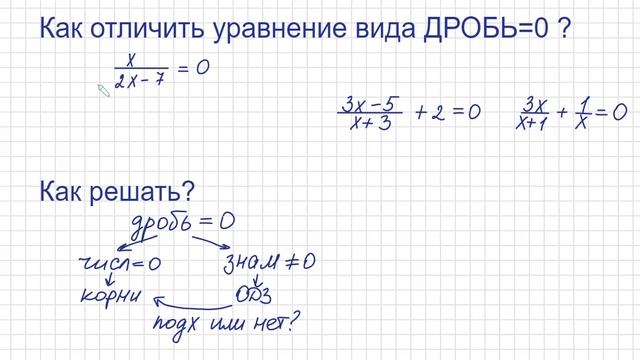 Как отличить уравнение вида ДРОБЬ=0 ?
x/(2x-7) = 0
(3x-5)/(x+3) + 2 = 0
3x/(x+1) + 1/x = 0
Как решать?
дробь = 0
числ=0 знам ≠ 0
корни ОДЗ
подх или нет?